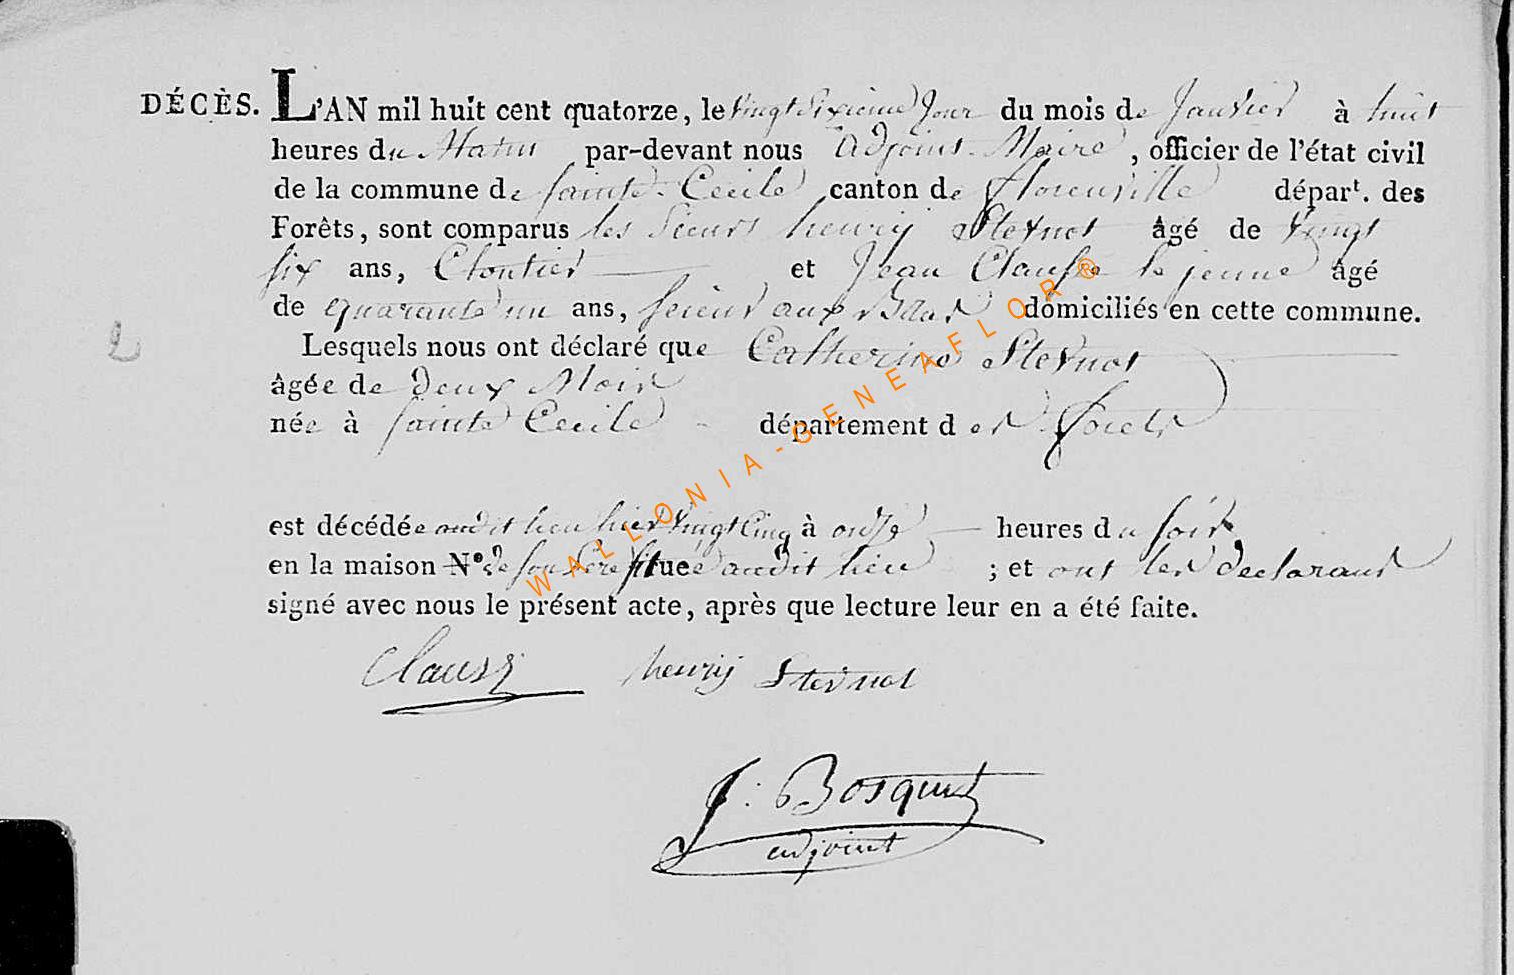 DÉCÈS. L'AN mil huit cent quatorze, le vingt sixieme jour du mois de Janvier à huit
heures du Matin par-devant nous Adjoint-Maire, officier de l'état civil
de la commune de Sainte-Cecile canton de Florenville départ. des
Forêts, sont comparus les Sieurs henrij Stevnot âgé de vingt
six ans, Cloutier et Jean Clausse le jeune âgé
de quarante un ans, scieur aux Bois domiciliés en cette commune.
2
Lesquels nous ont déclaré que Catherine Stevnot
âgée de Deux Mois
née à Sainte Cecile département des forets
est décédée audit lieu hier vingt Cinq à onze heures du soir
en la maison N° de son Pere située audit lieu ; et ont les declarans
signé avec nous le présent acte, après que lecture leur en a été faite.
Clausse henrij Stevnot
J: Bosquet
adjoint
WALLONIA-GENEAFLOR®